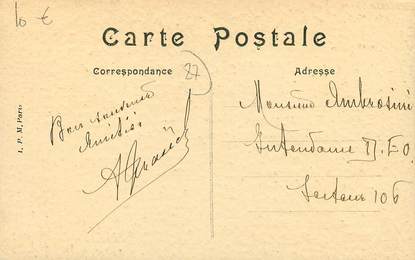 10 €
Carte Postale
Correspondance
27
Adresse
Bon souvenir
Amitiés
Monsieur Ambrosini
Intendance D.E.O
Secteur 106
A. P. M, Paris